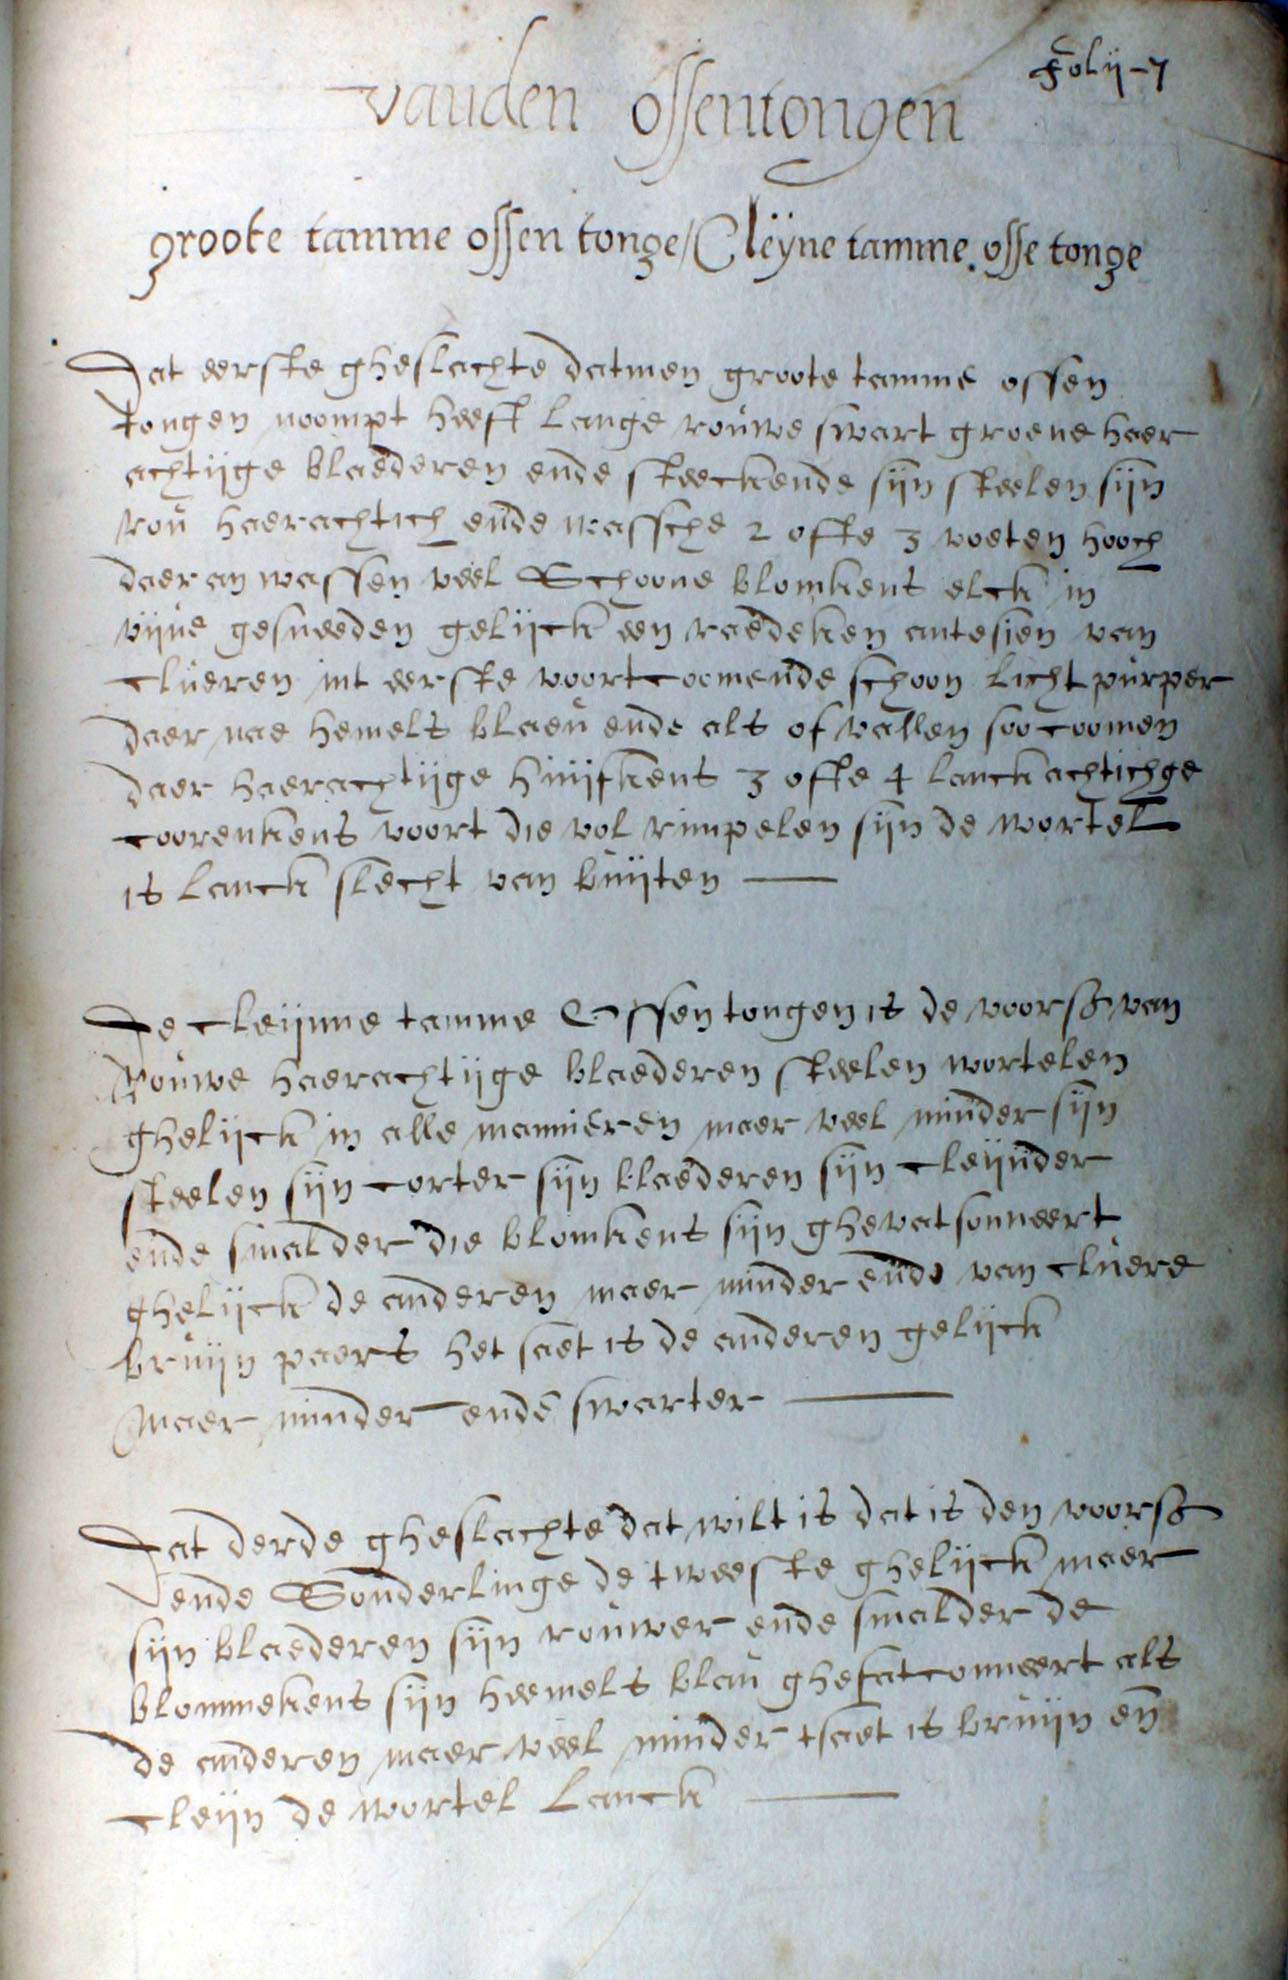 Folij-7
vanden ossentongen
groote tamme ossen tonge / Cleÿne tamme osse tonge
Dat eerste gheslachte datmen groote tamme ossen
tongen noompt heeft lange rouwe swart groene haer
achtijge blaederen ende steeckende sijn steelen sijn
rou haerachtich ende wassche 2 ofte 3 voeten hooch
daer an wassen veel Schoone blomkens elck in
vijve gesneeden gelijck een raedeken antesien van
cluren int eerste voortcoomende schoon licht purper
daer nae hemels blaeu ende als of vallen soo coomen
daer haerachtijge huijfkens 3 ofte 4 lanckachtichge
coorenkens voort die vol rimpelen sijn de wortel
is lanck slecht van buijten
De cleijnne tamme Ossen tongen is de voors van
Rouwe haerachtijge blaederen steelen wortelen
ghelijck in alle mannieren maer veel minder sijn
steelen sijn corter sijn blaederen sijn cleijnder
ende smalder die blomkens sijn ghevatsonneert
ghelijck de anderen maer minder ende van cluere
bruijn paers het saet is de anderen gelijck
Maer minder ende swarter
Dat derde gheslachte dat wilt is dat is den voors
ende Sonderlinge de tweeste ghelijck maer
sijn blaederen sijn rouwer ende smalder de
blommekens sijn heemels blau ghefatconneert als
de anderen maer veel minder tsaet is bruijn en
cleijn de wortel lanck